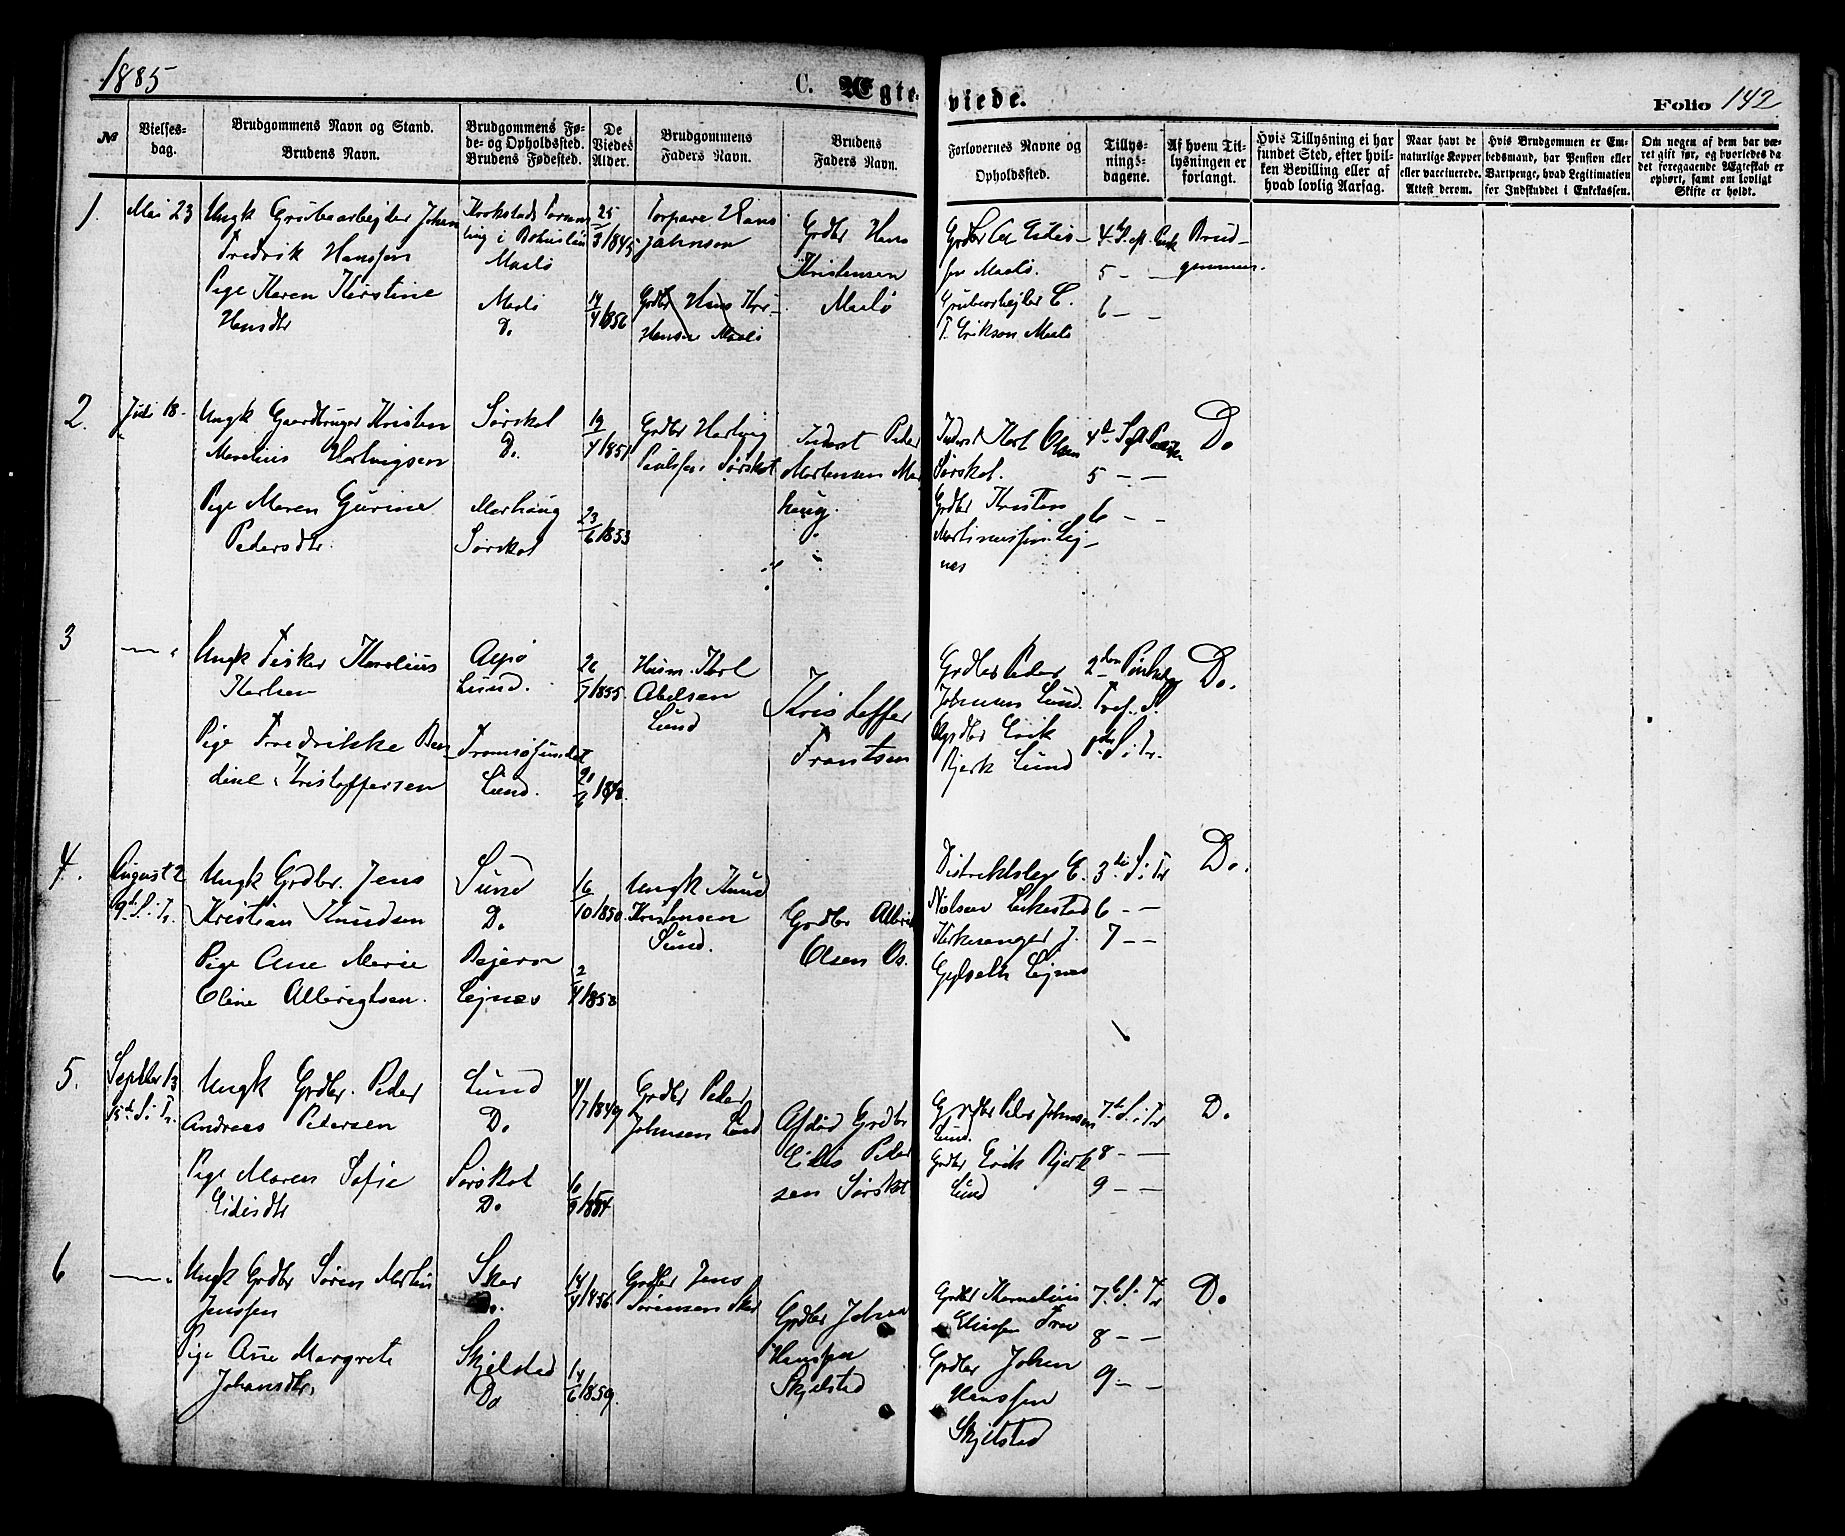 1885
C. Ægteviede.
Folio 142
№
Vielses-
dag.
Brudgommens Navn og Stand.
Brudens Navn.
Brudgommens Fø-
de- og Opholdssted.
Brudens Fødested.
De
Viedes
Alder.
Brudgommens
Faders Navn.
Brudens
Faders Navn.
Forlovernes Navne og
Opholdssted.
Tillys-
nings-
dagene.
Af hvem Til-
lysningen er
forlangt.
Hvis Tillysning ei har
fundet Sted, efter hvil-
ken Bevilling eller af
hvad lovlig Aarsag.
Naar havt de
naturlige Kopper
eller vaccinerede.
Attest derom.
Hvis Brudgommen er Em-
bedsmand, har Pension eller
Vartpenge, hvad Legitimation
for Indskuddet i Enkekassen.
Om nogen af dem har væ-
ret gift før, og hvorledes da
det foregaaende Ægteskab er
ophørt, samt om lovligt
Skifte er holdt.
1.
Mai 23
Ungk Grubearbejder Johan
Fredrik Hanssen
Pige Karen Kirstine
Hansdtr
i Bohuslän
Maalö
Maalö
D.
25/3 1845
14/4 1856
Torpare Hans
Johnson
Grdbr Hans Kri-
Hansen Maalö
Grdbr Hans
Kristensen
Maalö
Maalö.
Grubearbejder C.
F. Erikson Maalö
5 — —
6 — —
Brud-
gommen.
2.
Juli 18.
Ungk Gaardbruger Kristen
Marelius Hartvigsen
Pige Maren Gurine
Pedersdtr.
Sørskot
D.
Morhaug
Sørskot
19/4 1851
23/6 1853
Grdbr Hartvig
Paulssen Sørskot
Inderst Peder
Mortensen Mor
haug.
Inderst Karl Olsen
Sørskot.
Grdbr Kristen
Martinussen Lej-
nes
5 — —
6 — —
Do
3
— "
Ungk Fisker Karelius
Karlsen
Pige Fredrikke Ber
dine Kristoffersen
Alsø
Lund.
Tromsøsundet
Lund.
26/7 1855.
Husm. Karl
Abelsen
Lund
Kristoffer
Frantsen
Grdbr Peder
Johnsen Lund.
Grdbr Erik
Bjerk Lund
Tref. S.
Do.
4.
August 2
9d S. Tr.
Ungk Grdbr. Jens
Kristian Knudsen
Pige Ane Marie
Oline Albrigtsen.
Sund
D.
Bejern
Lejnes
16/10 1850.
2/4 1858
Ungk Knud
Kristensen
Sund.
Grdbr Albrigt
Olsen Os.
Distriktslege C.
Nielsen Lekestad
Kirkesanger J.
Gylseth Lejnes
3di S. i Tr
6 - —
7 — —
Do.
5.
Septbr 13
15d S. i Tr.
Ungk Grdbr. Peder
Andreas Pedersen
Pige Maren Sofie
Eidisdtr
Lund
D.
Sørskot
D.
4/7 1849
Grdbr Peder
Johnsen Lund
Afdød Grdbr
Eidis Peder
sen Sørskot
Grdbr Peder Johnsen
Lund.
Grdbr Erik Bjerk
Lund
7d S. i Tr
8 - —
9 — —
D.
6
— "
Ungk Grdbr Søren Martin
Jenssen
Pige Ane Margrete
Johansdtr.
Skar
Do.
Skjelstad
Do
14/4 1856.
14/6 1859.
Grdbr Jens
Sørensen Skar
Grdbr Johan
Hanssen
Skjelstad
Grdbr Kornelius
Grdbr Johan
Hanssen
Skjelstad
7d S. i Tr
8 - —
9 — —
D.